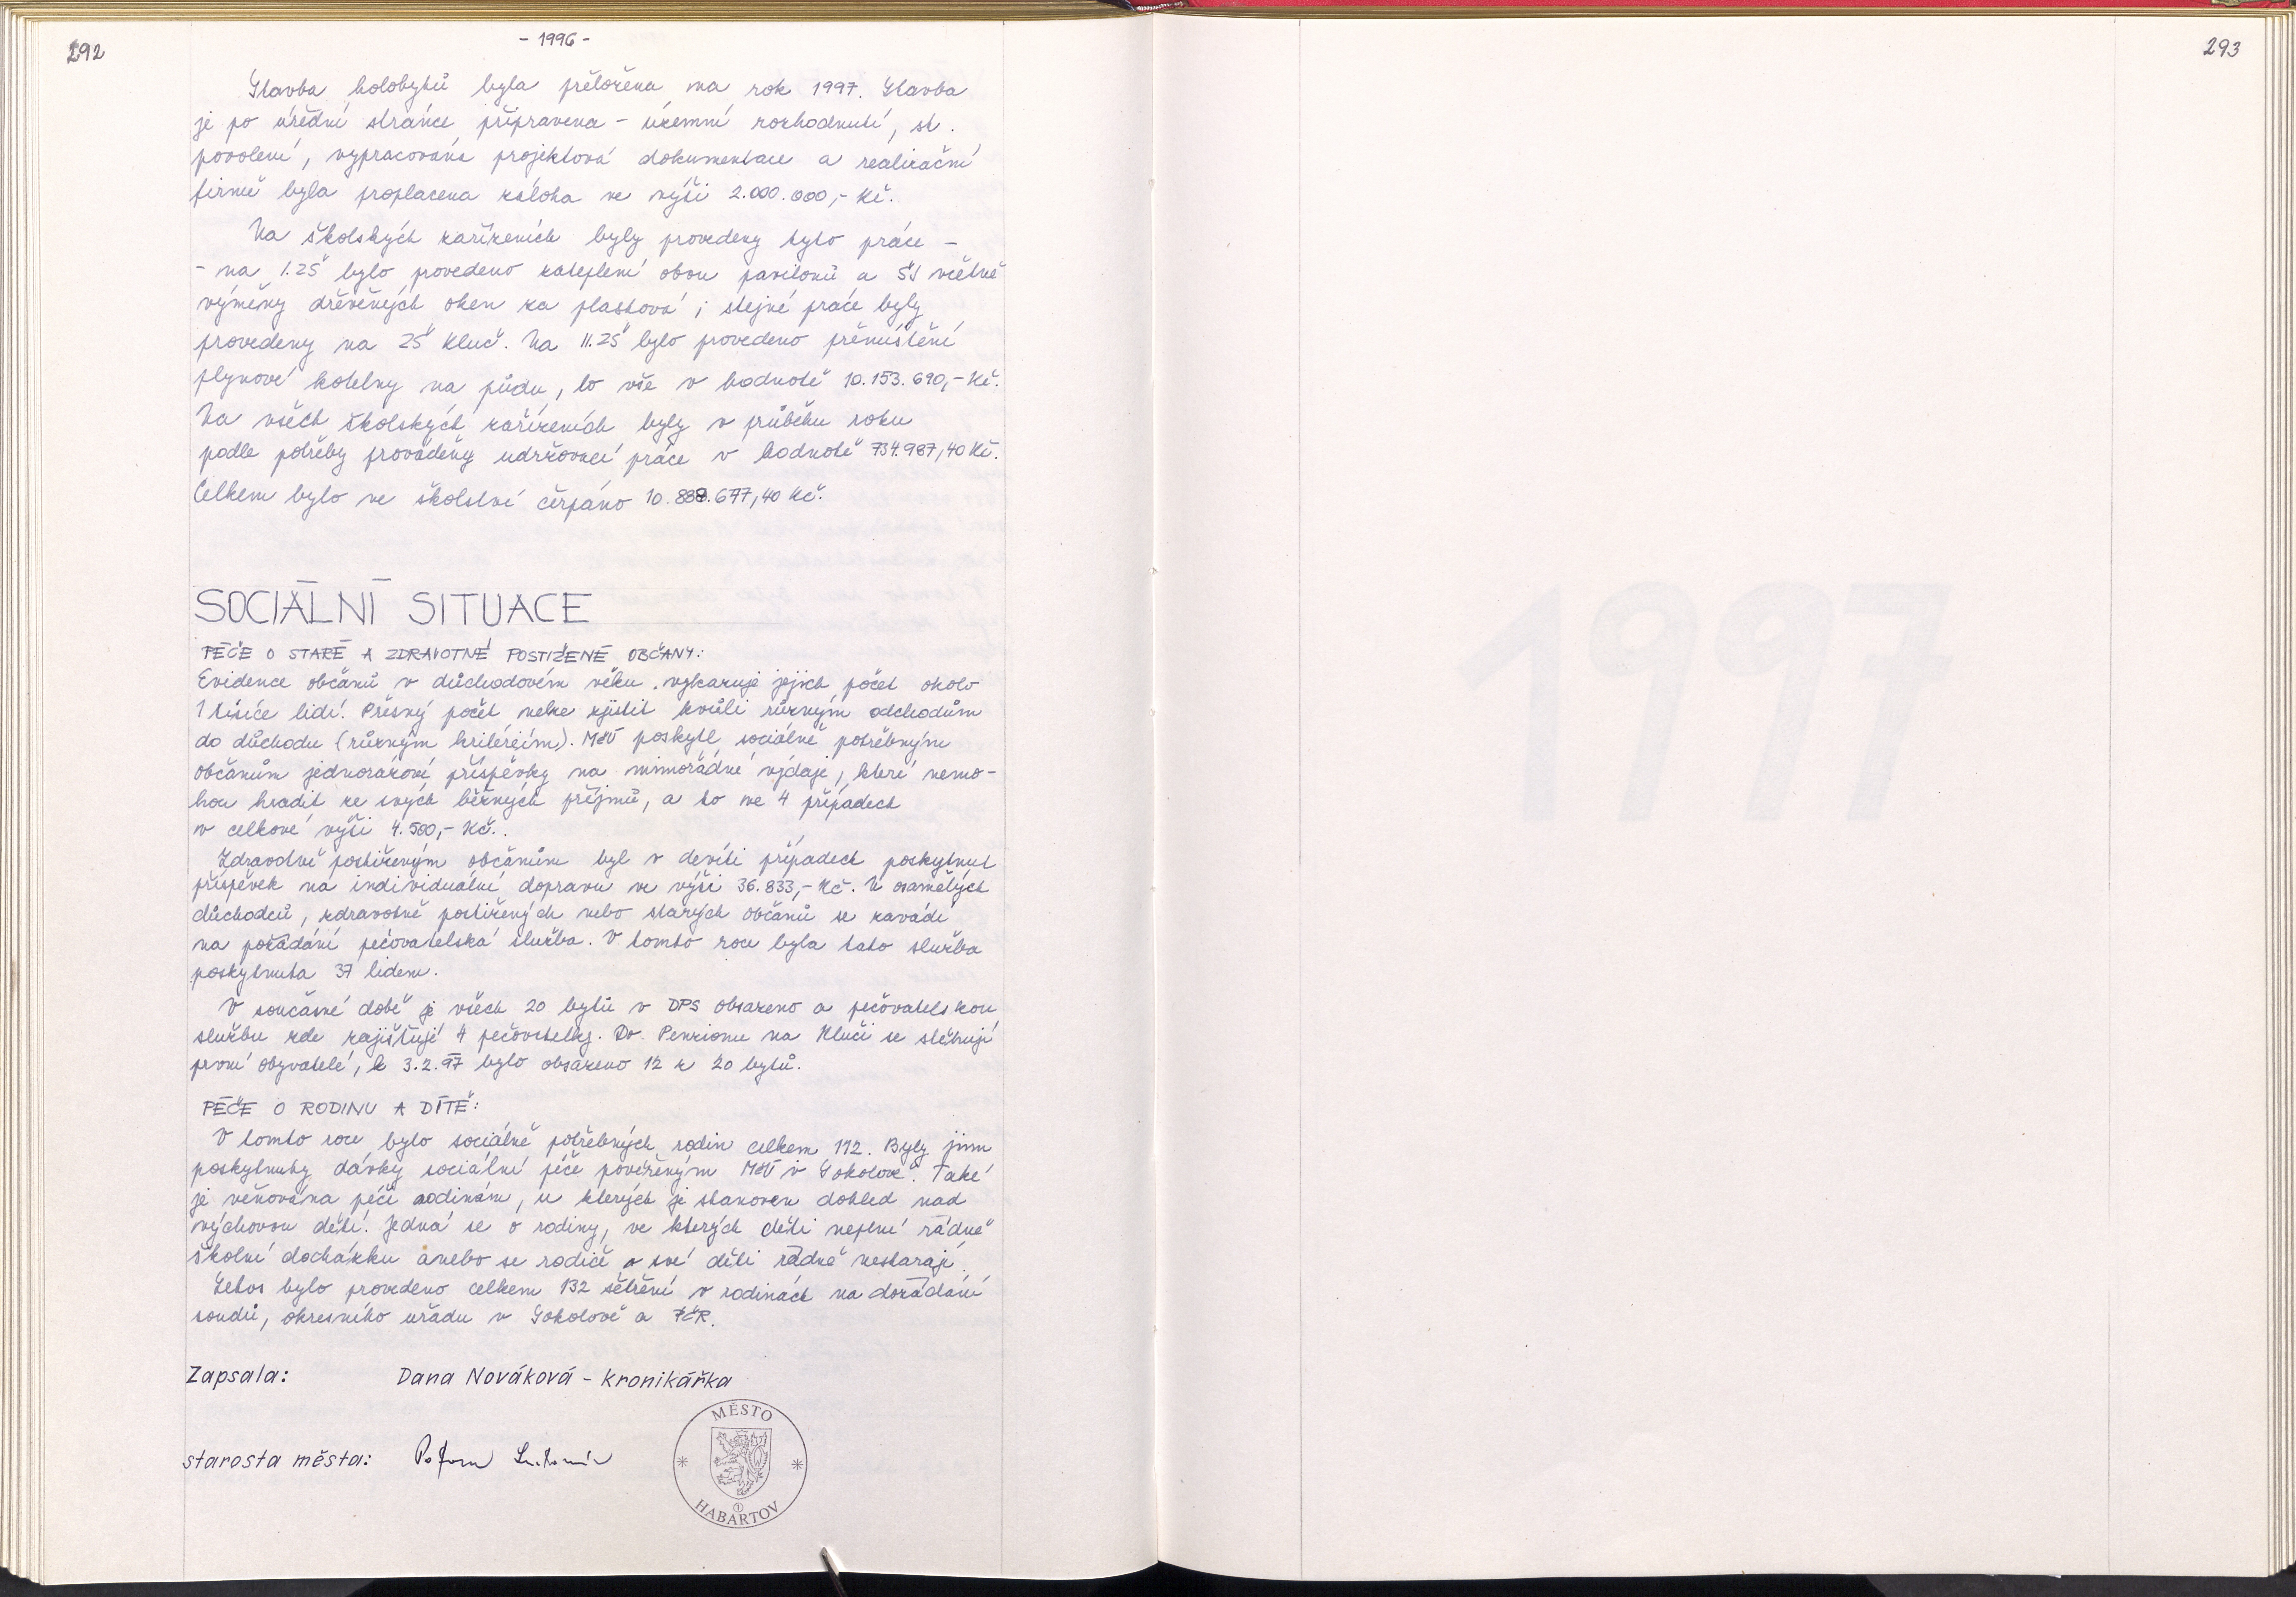 292
- 1996 -
Stavba holobytů byla přeložena na rok 1997. Stavba
je po úřední stránce připravena - územní rozhodnutí, st.
povolení, vypracována projektová dokumentace a realizační
firmě byla proplacena záloha ve výši 2.000.000,- Kč.
Na školských zařízeních byly provedeny tyto práce -
- na I. ZŠ bylo provedeno zateplení obou pavilonů a ŠJ včetně
výměny dřevěných oken za plastová; stejné práce byly
provedeny na ZŠ Kluč. Na II. ZŠ bylo provedeno přemístění
plynové kotelny na půdu, to vše v hodnotě 10.153.690,- Kč.
Na všech školských zařízeních byly v průběhu roku
podle potřeby prováděny udržovací práce v hodnotě 734.987,40 Kč.
Celkem bylo ve školství čerpáno 10.888.677,40 Kč.
SOCIÁLNÍ SITUACE
PÉČE O STARÉ A ZDRAVOTNĚ POSTIŽENÉ OBČANY:
Evidence občanů v důchodovém věku vykazuje jejich počet okolo
1 tisíce lidí. Přesný počet nelze zjistit kvůli různým odchodům
do důchodu (různým kritériím). MěÚ poskytl sociálně potřebným
občanům jednorázové příspěvky na mimořádné výdaje, které nemo-
hou hradit ze svých běžných příjmů, a to ve 4 případech
v celkové výši 4.500,- Kč.
Zdravotně postiženým občanům byl v devíti případech poskytnut
příspěvek na individuální dopravu ve výši 36.833,- Kč. U osamělých
důchodců, zdravotně postižených nebo starých občanů se zavádí
na požádání pečovatelská služba. V tomto roce byla tato služba
poskytnuta 37 lidem.
V současné době je všech 20 bytů v DPS obsazeno a pečovatelskou
službu zde zajišťují 4 pečovatelky. Do Penzionu na Kluči se stěhují
první obyvatelé, k 3.2.97 bylo obsazeno 12 z 20 bytů.
PÉČE O RODINU A DÍTĚ:
V tomto roce bylo sociálně potřebných rodin celkem 112. Byly jim
poskytnuty dávky sociální péče pověřeným MěÚ v Sokolově. Také
je věnována péče rodinám, u kterých je stanoven dohled nad
výchovou dětí. Jedná se o rodiny, ve kterých děti neplní řádně
školní docházku anebo se rodiče o své děti řádně nestarají.
Letos bylo provedeno celkem 132 šetření v rodinách na dožádání
soudů, okresního úřadu v Sokolově a PČR.
Zapsala: Dana Nováková - kronikářka
starosta města:
MĚSTO
1
HABARTOV
293
1997